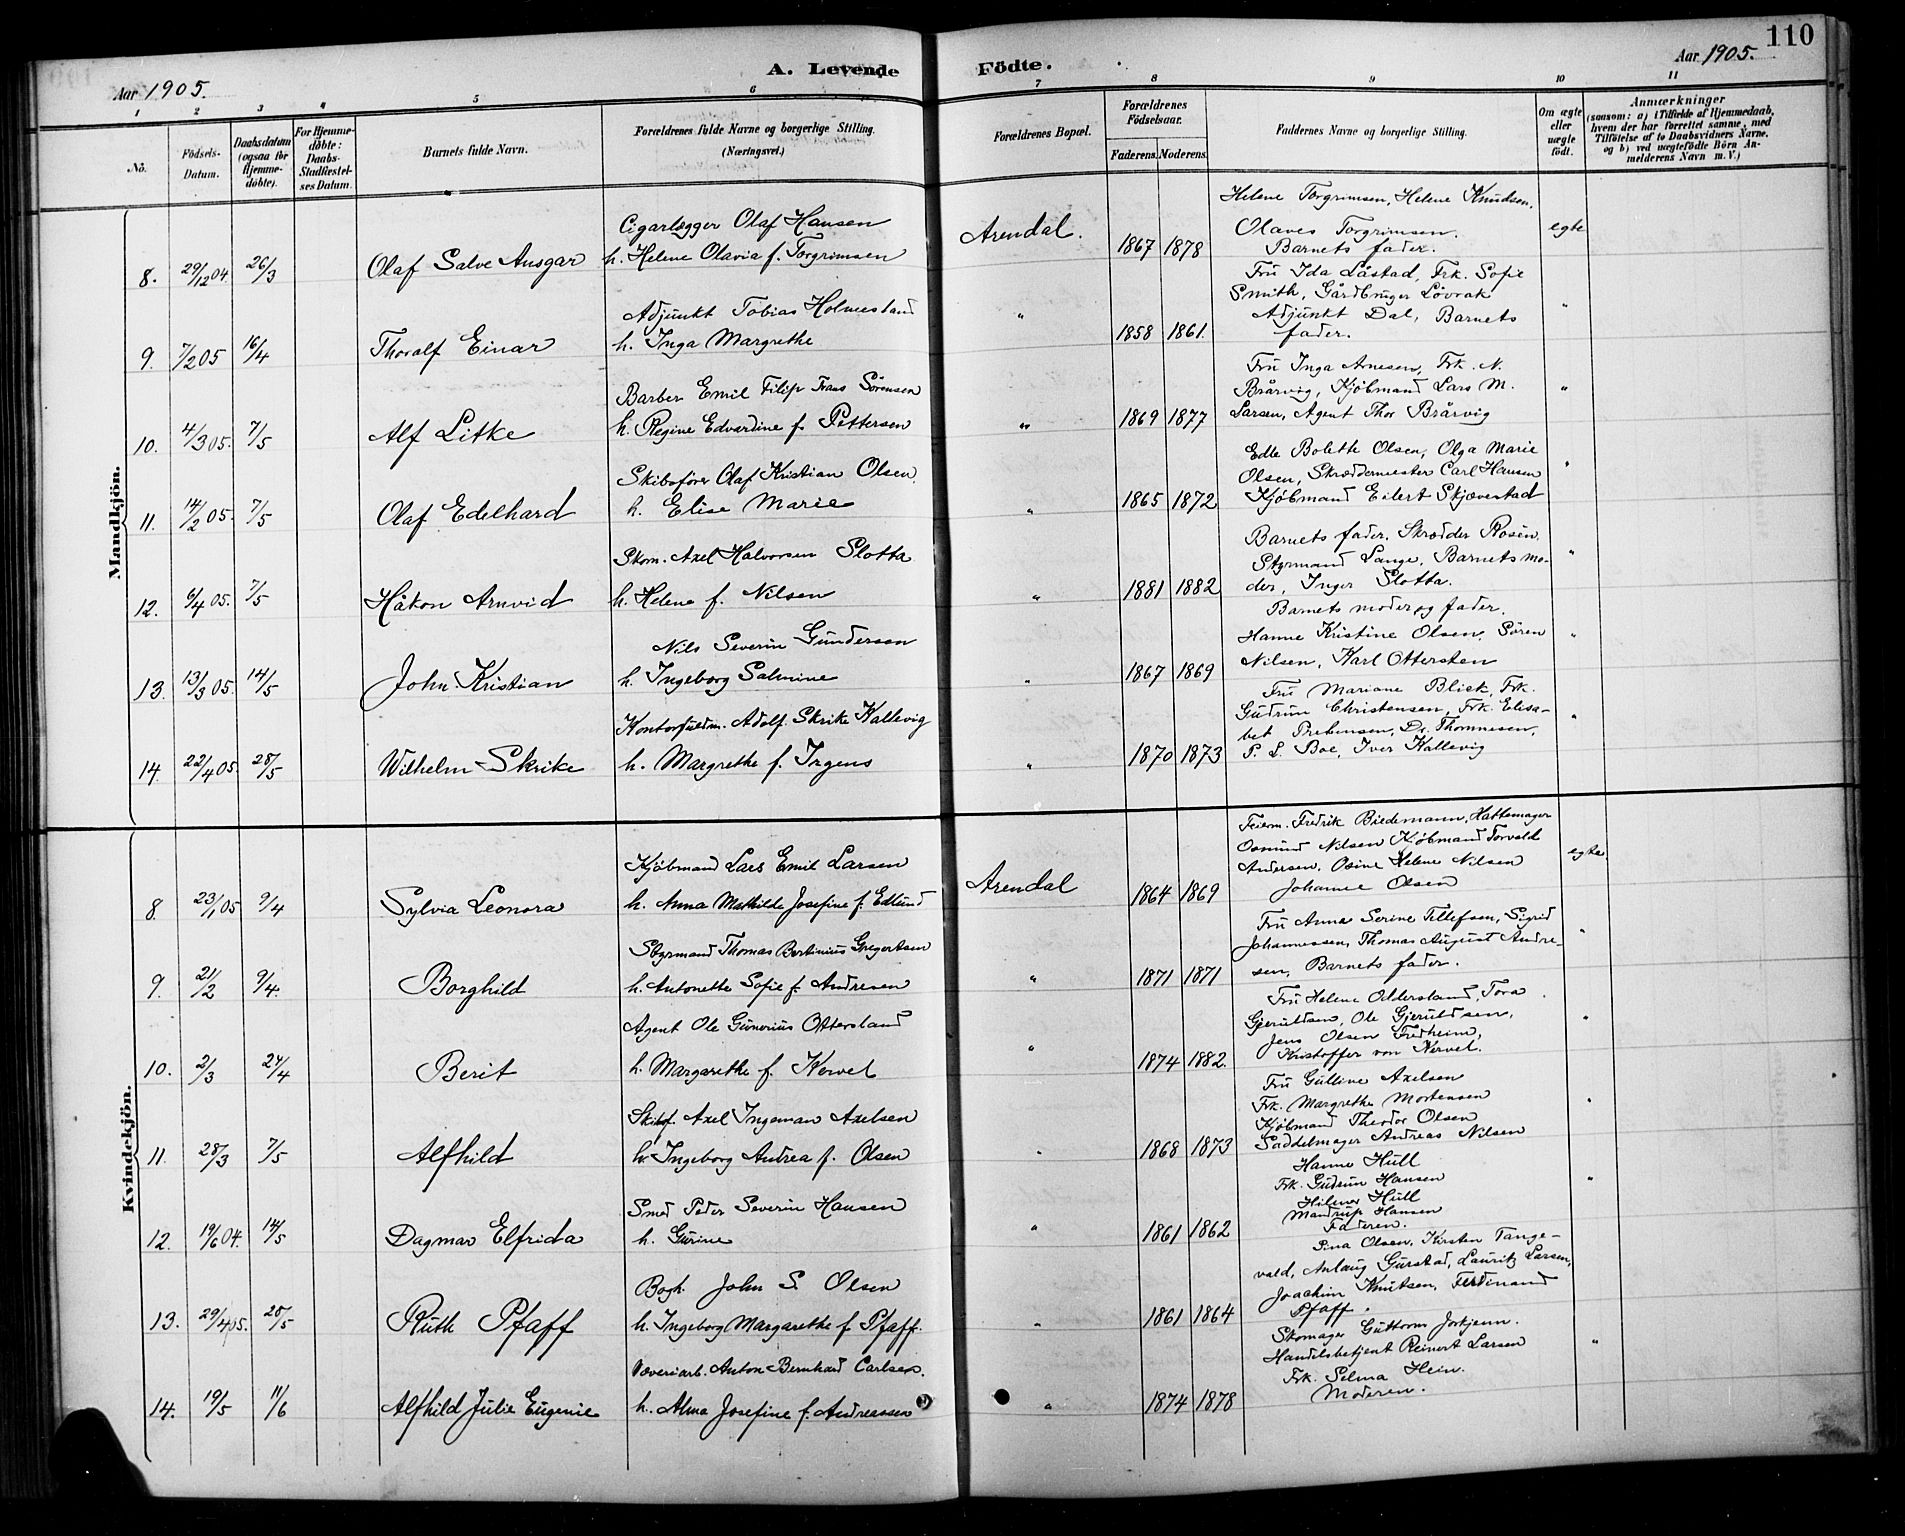 110
Aar 1905.
A. Levende Fødte.
Aar 1905.
1 2 3 4 5 6 7 8 9 10 11
No.
Fødsels-Datum.
Daabsdatum (ogsaa for Hjemmedøbte).
For Hjemmedøbte: Daabs-Stadfæstelses Datum.
Barnets fulde Navn.
Forældrenes fulde Navne og borgerlige Stilling. (Næringsvei.)
Forældrenes Bopæl.
Forældrenes Fødselsaar.
Faderens. Moderens.
Faddernes Navne og borgerlige Stilling.
Om ægte eller uægte født.
Anmærkninger
(saasom: a) i Tilfælde af Hjemmedaab, hvem der har forrettet samme, med Tilføielse af to Daabsvidners Navne, og b) ved uægtefødte Børn Anmelderens Navn m. V.)
Mandkjøn.
Helene Torgrimsen, Helene Knudsen,
Cigarlægger Olaf Hansen Arendal. Olaves Torgrimsen. egte
8. 29/12 04. 26/3 Olaf Salve Ansgar h. Helene Olavia f. Torgrimsen 1867 1878 Barnets fader.
Fru Ida Låstad, Frk. Sofie
Smith, Gårdbruger Løvrak
Adjunkt Tobias Holmestand " Adjunkt Dal, Barnets "
9. 7/2 05 16/4 Thoralf Einar h. Inga Margrethe 1858 1861. fader.
Fru Inga Arnesen, Frk. N.
Barber Emil Filip Frans Sørensen Brårvig, Kjøbmand Lars M. "
10. 4/3 05. 7/5 Alf Litke h. Regine Edvardine f. Pettersen " 1869 1877 Larsen, Agent Thor Brårvig
Edle Bolette Olsen, Olga Marie
Skibsfører Olaf Kristian Olsen, Olsen, Skræddermester Carl Hansen "
11. 14/2 05. 7/5 Olaf Edelhard h. Elise Marie " 1865 1872 Kjøbmand Eilert Skjævestad
Barnets fader, Skrædder Rosén,
Skom. Axel Halvorsen Slotta Styrmand Lange, Barnets mo- "
12. 6/4 05. 7/5 Håkon Arnvid h. Helene f. Nilsen " 1881 1882 der, Inger Slotta.
Barnets moder og fader,
Nils Severin Gundersen Hanne Kristine Olsen, Søren "
13. 13/3 05. 14/5 John Kristian h. Ingeborg Salmine " 1867 1869 Nilsen, Karl Ottersten
Fru Mariane Blick, Frk.
Kontorfuldm. Adolf Skrike Kallevig Gudrun Christensen, Frk. Elisa- "
bet Prebensen, Dr. Thommesen,
14. 22/4 05. 28/5 Wilhelm Skrike h. Margrethe f. Irgens " 1870 1873 P. L. Boe, Iver Kallevig
Kvindekjøn.
Feierm. Fredrik Biedemann, Hattemager
Osmund Nilsen Kjøbmand Torvald
Kjøbmand Lars Emil Larsen Arendal Andersen, Osine Helene Nilsen egte.
8 23/1 05 9/4 Sylvia Leonora h. Anna Mathilde Josefine f. Edlund 1864 1869 Johanne Olsen
Fru Anna Serine Tellefsen, Sigrid
Styrmand Thomas Bertinius Gregertsen Johannessen, Thomas August Andre- "
9. 21/2 9/4. Borghild h. Antonette Sofie f. Andresen " 1871 1871 sen, Barnets fader.
Fru Helene Odderstand, Tora
Agent Ole Gunerius Ottersland Gjeruldsen, Ole Gjeruldsen, "
Jens Olsen Fredheim,
10. 2/3 24/4 Berit h. Margarethe f. Kervel " 1874 1882. Kristoffer von Kervel.
Fru Gulline Axelsen
Frk. Margrethe Mortensen
Skibsf. Axel Ingeman Axelsen Kjøbmand Theodor Olsen "
11. 28/3 7/5 Alfhild h. Ingeborg Andrea f. Olsen " 1868 1873 Saddelmager Andreas Nilsen
Hanne Hull
Frk. Gudrun Hansen
Hilmer Hull "
Smed Peder Severin Hansen Mandrup Hansen
12. 19/6 04. 14/5 Dagmar Elfrida h. Gurine " 1861 1862 Faderen.
Pina Olsen, Kirsten Tange-
vald, Anlaug Gurstad, Lauritz Larsen,
Bogh. John S. Olsen Joachim Knutsen, Ferdinand
13. 29/4 05. 28/5 Ruth Pfaff h. Ingeborg Margarethe f. Pfaff. " 1861 1864 Pfaff.
Skomager Guttorm Jorkjenn.
Handelsbetjent Reinert Larsen "
Væveriarb. Anton Bernhard Carlsen. Frk. Selma Hein.
14. 19/5 11/6 Alfhild Julie Eugenie h. Alma Josefine f. Andreassen " 1874 1878 Moderen.